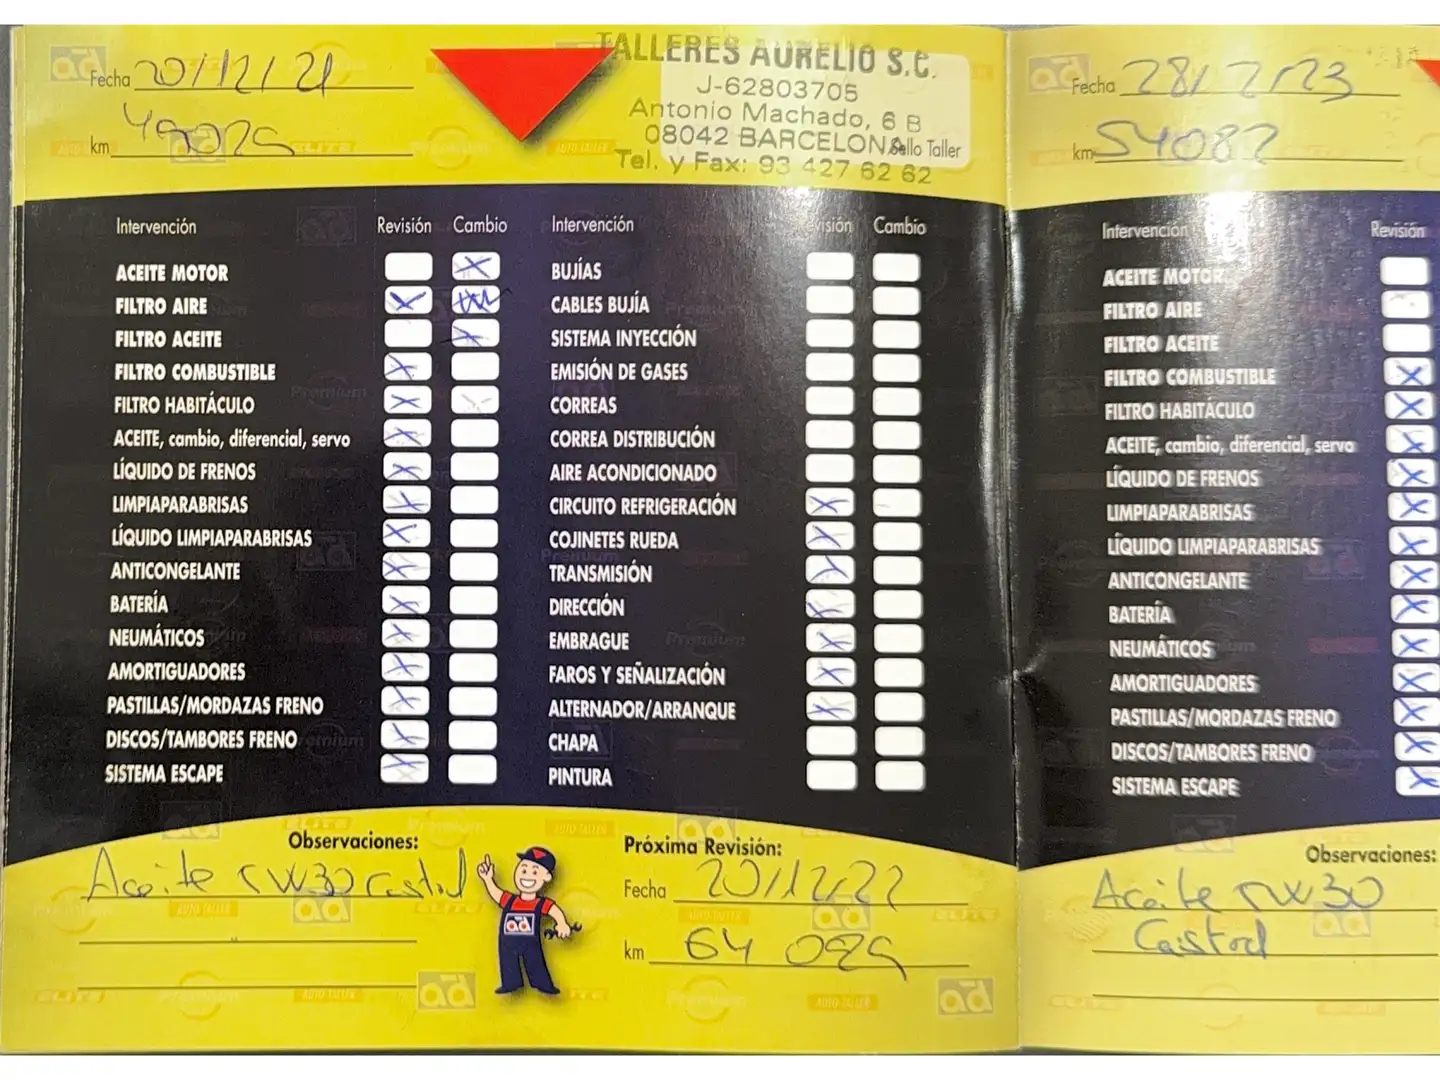 Fecha 20/12/21
km 49029
TALLERES AURELIO S.C.
J-62803705
Antonio Machado, 6 B
08042 BARCELONA
Sello Taller
Tel. y Fax: 93 427 62 62
Intervención Revisión Cambio
ACEITE MOTOR
FILTRO AIRE
FILTRO ACEITE
FILTRO COMBUSTIBLE
FILTRO HABITÁCULO
ACEITE, cambio, diferencial, servo
LÍQUIDO DE FRENOS
LIMPIAPARABRISAS
LÍQUIDO LIMPIAPARABRISAS
ANTICONGELANTE
BATERÍA
NEUMÁTICOS
AMORTIGUADORES
PASTILLAS/MORDAZAS FRENO
DISCOS/TAMBORES FRENO
SISTEMA ESCAPE
Intervención Revisión Cambio
BUJÍAS
CABLES BUJÍA
SISTEMA INYECCIÓN
EMISIÓN DE GASES
CORREAS
CORREA DISTRIBUCIÓN
AIRE ACONDICIONADO
CIRCUITO REFRIGERACIÓN
COJINETES RUEDA
TRANSMISIÓN
DIRECCIÓN
EMBRAGUE
FAROS Y SEÑALIZACIÓN
ALTERNADOR/ARRANQUE
CHAPA
PINTURA
Observaciones:
Aceite 5W30 Castrol
Próxima Revisión:
Fecha 20/12/22
km 64 029
ad
Fecha 28/2/23
km 54082
Intervención Revisión
ACEITE MOTOR
FILTRO AIRE
FILTRO ACEITE
FILTRO COMBUSTIBLE
FILTRO HABITÁCULO
ACEITE, cambio, diferencial, servo
LÍQUIDO DE FRENOS
LIMPIAPARABRISAS
LÍQUIDO LIMPIAPARABRISAS
ANTICONGELANTE
BATERÍA
NEUMÁTICOS
AMORTIGUADORES
PASTILLAS/MORDAZAS FRENO
DISCOS/TAMBORES FRENO
SISTEMA ESCAPE
Observaciones:
Aceite 5W30
Castrol